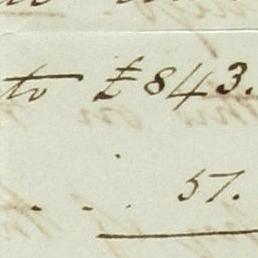 to £843.
. . . 57.